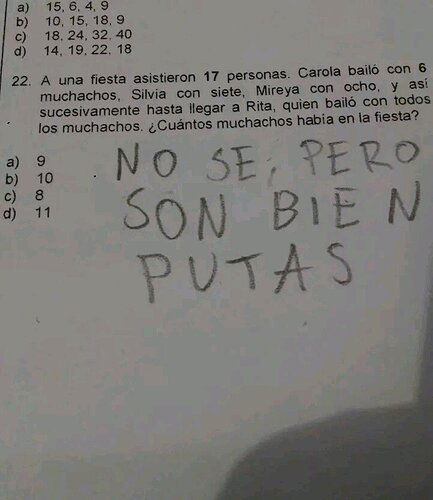 a) 15, 6, 4, 9
b) 10, 15, 18, 9
c) 18, 24, 32, 40
d) 14, 19, 22, 18
22. A una fiesta asistieron 17 personas. Carola bailó con 6
muchachos, Silvia con siete, Mireya con ocho, y así
sucesivamente hasta llegar a Rita, quien bailó con todos
los muchachos. ¿Cuántos muchachos había en la fiesta?
a) 9
b) 10
c) 8
d) 11
NO SE, PERO
SON BIEN
PUTAS